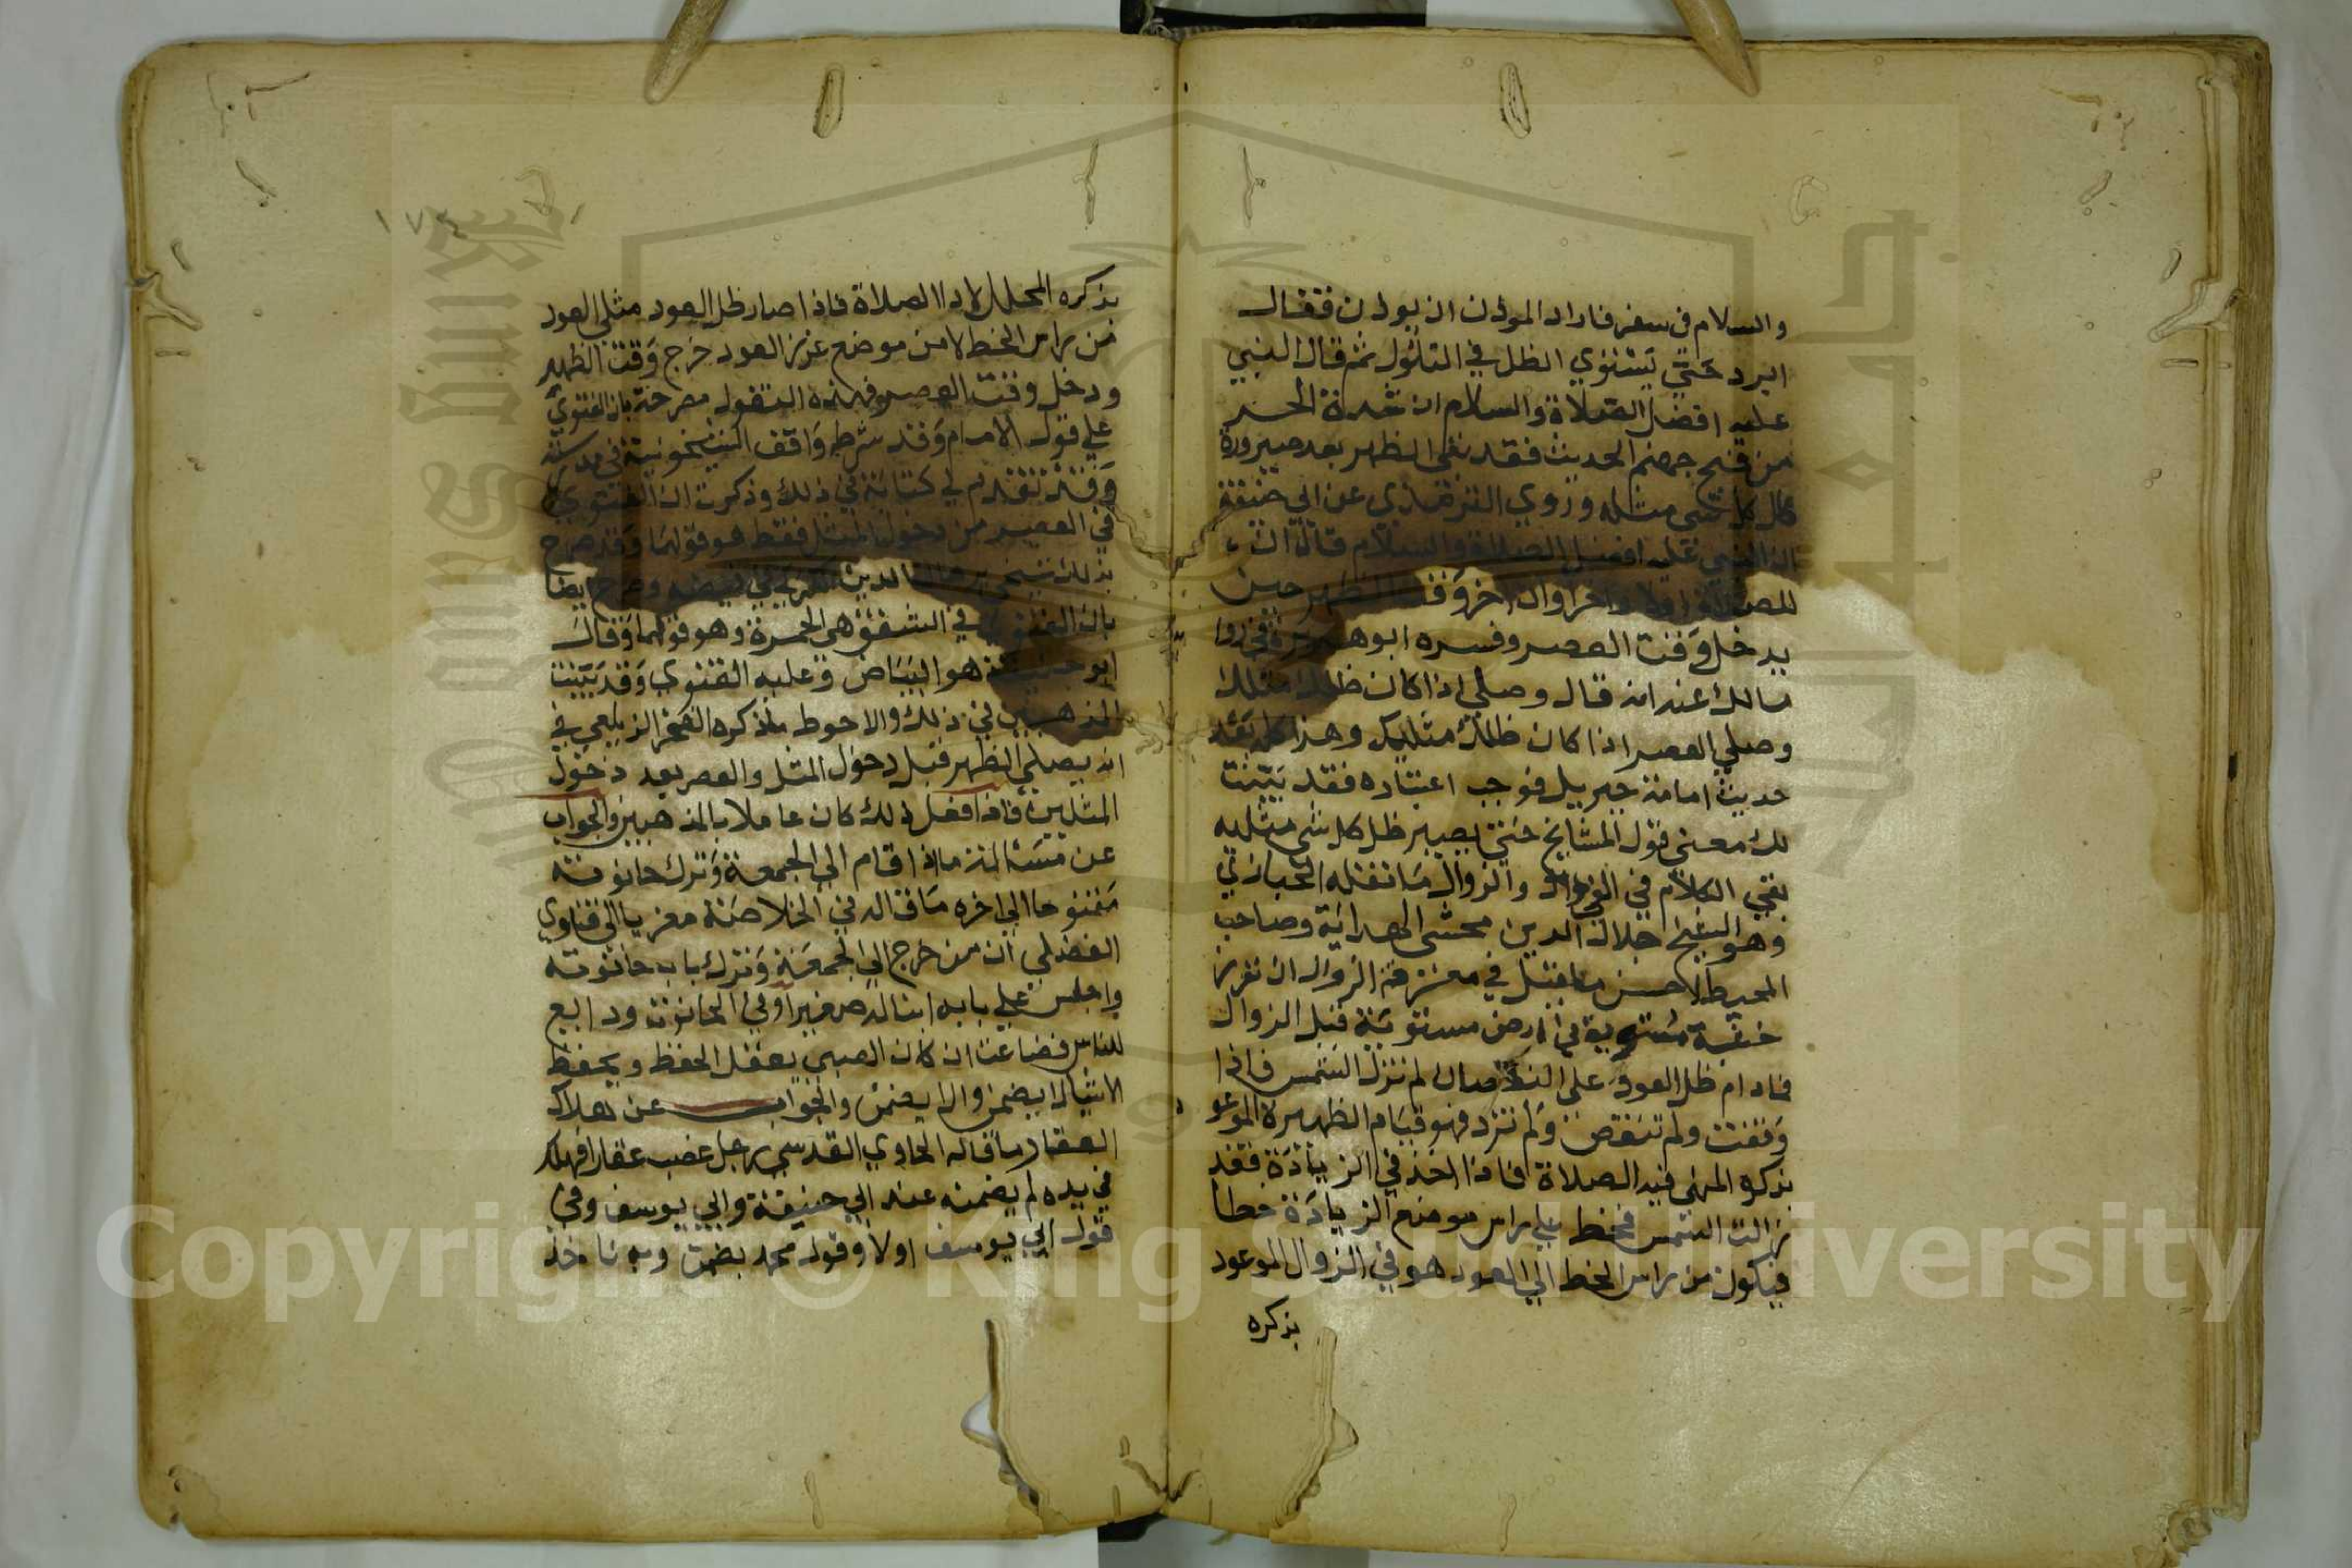 والسلام في سفر فاراد المؤذن ان يوذن فقال
ابرد حتي يستوي الظل في التلول ثم قال النبي
عليه افضل الصلاة والسلام ان شدة الحر
من فيح جهنم الحديث فقد بقي الظهر بعد صيرورة
كل شي مثله وروي الترمذي عن ابي
ان النبي عليه افضل الصلاة والسلام قال ان
للصلاة اولا واخرا وان اخر وقت الظهر حين
يدخل وقت العصر وفسره ابو
مالك عنه انه قال وصلي اذا كان ظلك مثلك
وصلي العصر اذا كان ظلك مثليك وهذا كله بعد
حديث امامة جبريل فوجب اعتباره فقد بينت
لك معني قول المشايخ حتي يصير ظل كل شي مثليه
بقي الكلام في والزوال ما نقله الخبازي
وهو الشيخ جلال الدين محشي الهداية وصاحب
المحيط الاحسن ما قيل في معرفة الزوال ان تغرز
خشبة مستوية في ارض مستوية قبل الزوال
فمادام ظل العود علي النقصان لم تزل الشمس فاذا
وقفت ولم تنقص ولم تزد فهو قيام الظهيرة الموعود
بذكره المنهي فيه الصلاة فاذا اخذ في الزيادة فقد
زالت الشمس فخط علي راس موضع الزيادة خطا
فيكون من راس الخط الي العود هو في الزوال الموعود
بذكره
١٧٤
بذكره المحلل لاداء الصلاة فاذا صار ظل العود مثلي العود
من راس الخط لا من موضع غرز العود خرج وقت الظهر
ودخل وقت العصر فهذه النقول مصرحة بان الفتوي
علي قول الامام وقد شرط واقف الشيخونية في
وقد تقدم لي كتابة في ذلك وذكرت ان الفتوي
في العصر من دخول المثل فقط هو قولهما وقد صرح
بذلك شيخي برهان الدين الكركي في فيضه وصرح ايضا
بان الفتوي في الشفق هي الحمرة وهو قولهما وقال
ابو حنيفة هو البياض وعليه الفتوي وقد بينت
المذهبين في ذلك والاحوط ما ذكره الفخر الزيلعي في
انه يصلي الظهر قبل دخول المثل والعصر بعد دخول
المثلين فاذا فعل ذلك كان عاملا بالمذهبين والجواب
عن مسئلة ما اذا قام الي الجمعة وترك حانوته
مفتوحا الي اخره ما قاله في الخلاصة معزيا الي فتاوي
الفضلي ان من خرج الي الجمعة وترك باب حانوته
واجلس علي بابه ابنا له صغيرا وفي الحانوت ودايع
للناس فضاعت ان كان الصبي يعقل الحفظ ويحفظ
الاشيا لا يضمن والا يضمن والجواب عن هلاك
العقار ما قاله الحاوي القدسي رجل غصب عقارا فهلك
في يده لم يضمنه عند ابي حنيفة وابي يوسف وفي
قول ابي يوسف اولا وقول محمد يضمن وبه ناخذ
Copyright © King Saud University